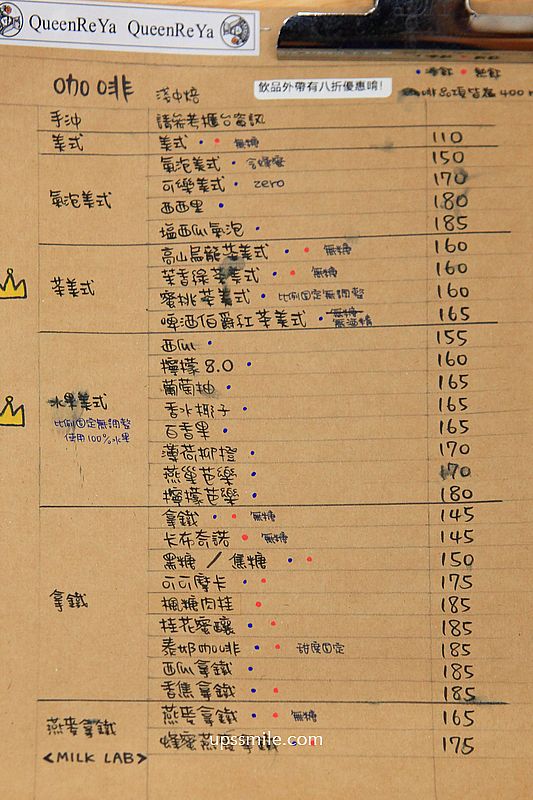 QueenReYa QueenReYa
咖啡 淺中焙
飲品外帶有八折優惠唷!
手沖 請參考櫃台資訊
美式 美式 無糖 110
氣泡美式
氣泡美式 含蜂蜜 150
可樂美式 zero 170
西西里 180
塩西瓜氣泡 185
茶美式
高山烏龍茶美式 無糖 160
茉香綠茶美式 無糖 160
蜜桃茶美式 比例固定無調整 160
啤酒伯爵紅茶美式 無糖 無酒精 165
水果美式
比例固定無調整
使用100%水果
西瓜 155
檸檬 8.0 160
葡萄柚 165
香水椰子 165
百香果 165
薄荷柳橙 170
燕巢芭樂 170
檸檬芭樂 180
拿鐵
拿鐵 無糖 145
卡布奇諾 無糖 145
黑糖 / 焦糖 150
可可摩卡 175
楓糖肉桂 185
桂花蜜釀 185
泰奶咖啡 甜度固定 185
西瓜拿鐵 185
香蕉拿鐵 185
燕麥拿鐵
<MILK LAB>
燕麥拿鐵 無糖 165
蜂蜜燕麥拿鐵 175
upssmile.com